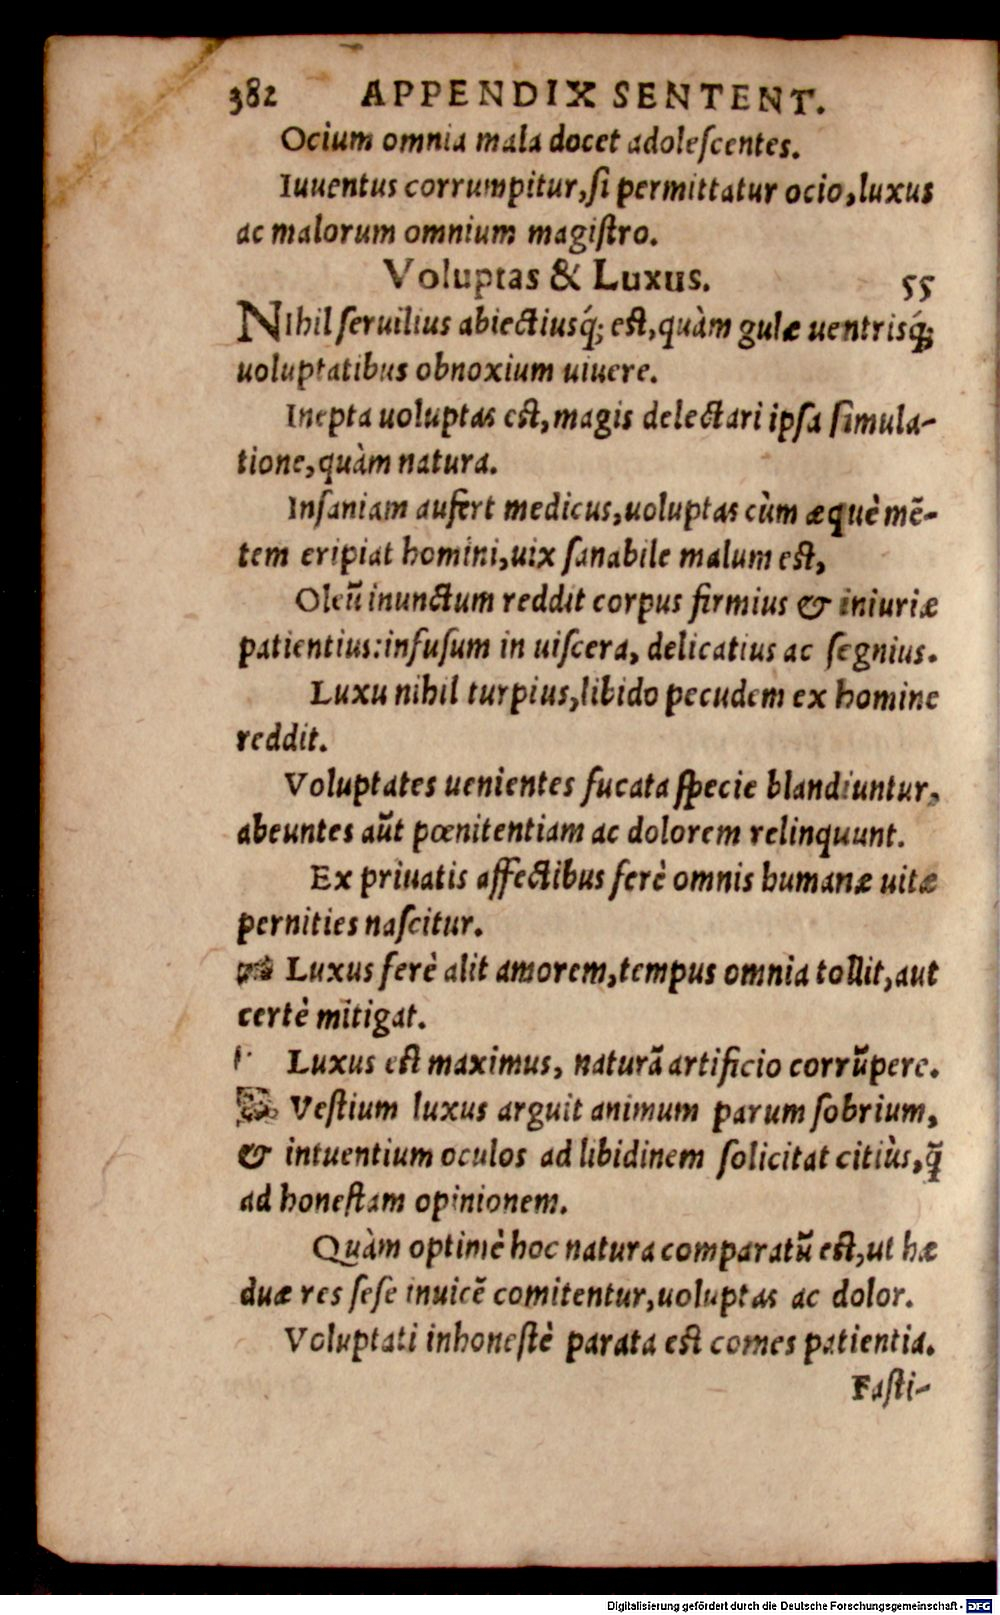 382 APPENDIX SENTENT.
Ocium omnia mala docet adolescentes.
Iuuentus corrumpitur, si permittatur ocio, luxus
ac malorum omnium magistro.
Voluptas & Luxus. 55
NIhil seruilius abiectiusq́; est, quàm gulæ uentrisq́;
uoluptatibus obnoxium uiuere.
Inepta uoluptas est, magis delectari ipsa simula-
tione, quàm natura.
Insaniam aufert medicus, uoluptas cùm æquè mē-
tem eripiat homini, uix sanabile malum est,
Oleū inunctum reddit corpus firmius & iniuriæ
patientius: infusum in uiscera, delicatius ac segnius.
Luxu nihil turpius, libido pecudem ex homine
reddit.
Voluptates uenientes fucata specie blandiuntur,
abeuntes aūt pœnitentiam ac dolorem relinquunt.
Ex priuatis affectibus ferè omnis humanæ uitæ
pernities nascitur.
Luxus ferè alit amorem, tempus omnia tollit, aut
certè mitigat.
Luxus est maximus, naturā artificio corrūpere.
Vestium luxus arguit animum parum sobrium,
& intuentium oculos ad libidinem solicitat citiùs, q̃
ad honestam opinionem.
Quàm optimè hoc natura comparatū est, ut hæ
duæ res sese inuicē comitentur, uoluptas ac dolor.
Voluptati inhonestè parata est comes patientia.
Fasti-
Digitalisierung gefördert durch die Deutsche Forschungsgemeinschaft - DFG